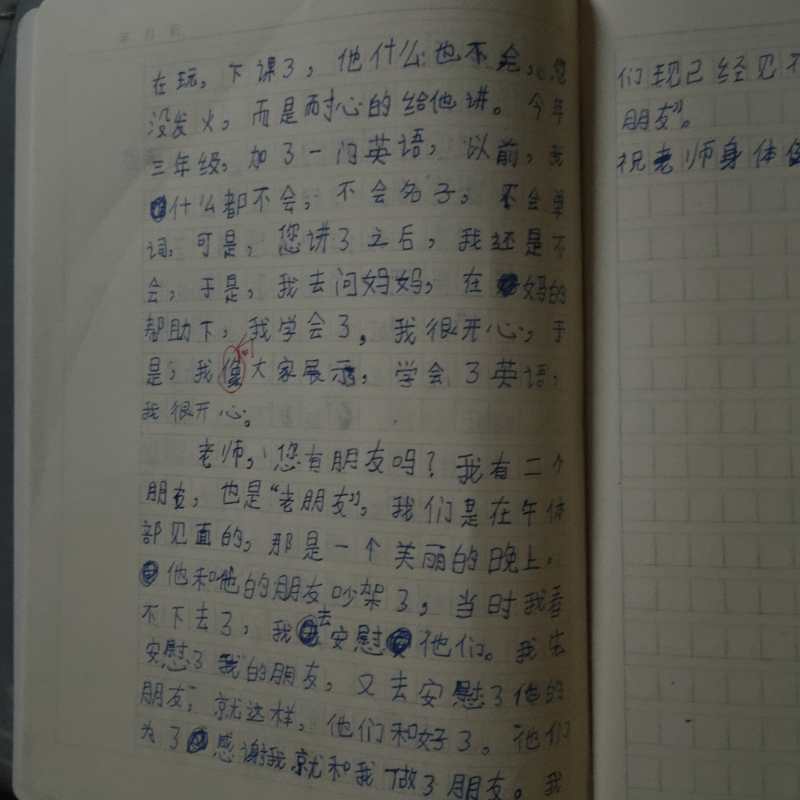 在玩，下课了，他什么也不会，您
没发火，而是耐心的给他讲。今年
三年级，加了一门英语，以前，我
什么都不会，不会名子，不会单
词，可是，您讲了之后，我还是不
会，于是，我去问妈妈，在妈妈的
帮助下，我学会了，我很开心，于
是，我像大家展示，学会了英语，
我很开心。
老师，您有朋友吗？我有二个
朋友，也是“老朋友”，我们是在午休
部见面的，那是一个美丽的晚上，
他和他的朋友吵架了，当时我看
不下去了，我去安慰他们。我先
安慰了我的朋友，又去安慰了他的
朋友，就这样，他们和好了。他们
为了感谢我就和我做了朋友。我
们现己经见不
朋友”。
祝老师身体